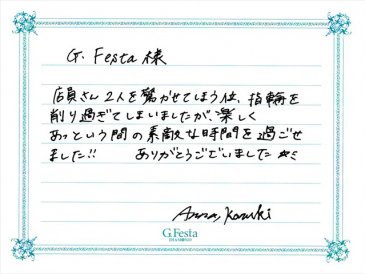 G. Festa 様
店員さん2人を驚かせてしまう位、指輪を
削り過ぎてしまいましたが、楽しく
あっという間の素敵な時間を過ごせ
ました!! ありがとうございました
Kazuki
G.Festa
DIAMOND